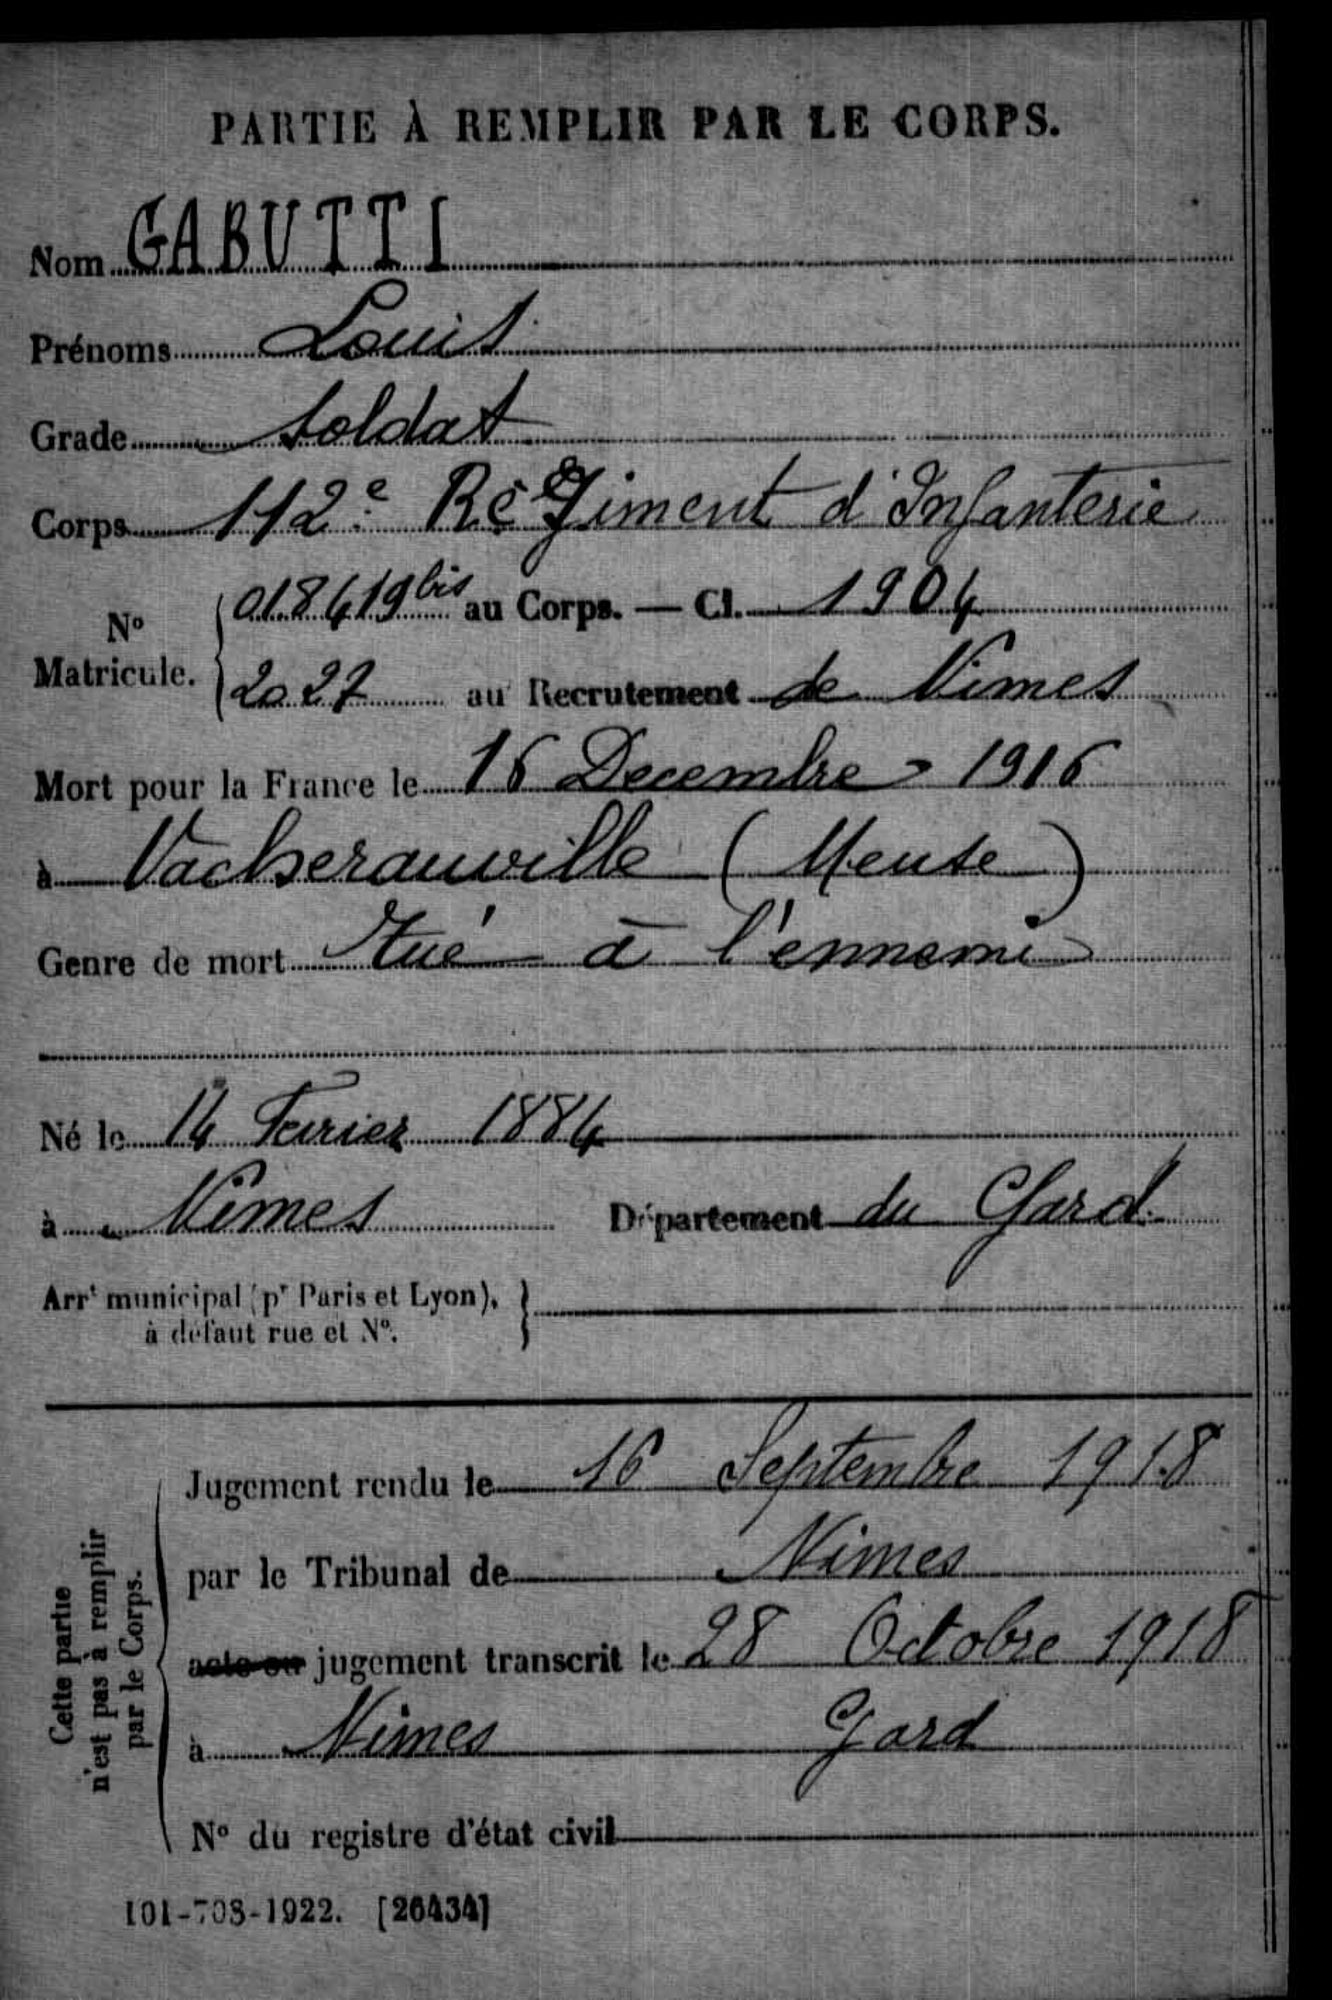 PARTIE À REMPLIR PAR LE CORPS.
Nom GABUTTI
Prénoms Louis
Grade Soldat
Corps 112e Régiment d'Infanterie
N° Matricule. 018419 bis au Corps. — Cl. 1904
2027 au Recrutement de Nimes
Mort pour la France le 16 Decembre 1916
à Vacherauville (Meuse)
Genre de mort Tué à l'ennemi
Né le 14 Fevrier 1884
à Nîmes Département du Gard
Arrt municipal (pr Paris et Lyon),
à défaut rue et N°.
Cette partie
n'est pas à remplir
par le Corps.
Jugement rendu le 16 Septembre 1918
par le Tribunal de Nimes
acte ou jugement transcrit le 28 Octobre 1918
à Nimes Gard
N° du registre d'état civil
101-708-1922. [26434]